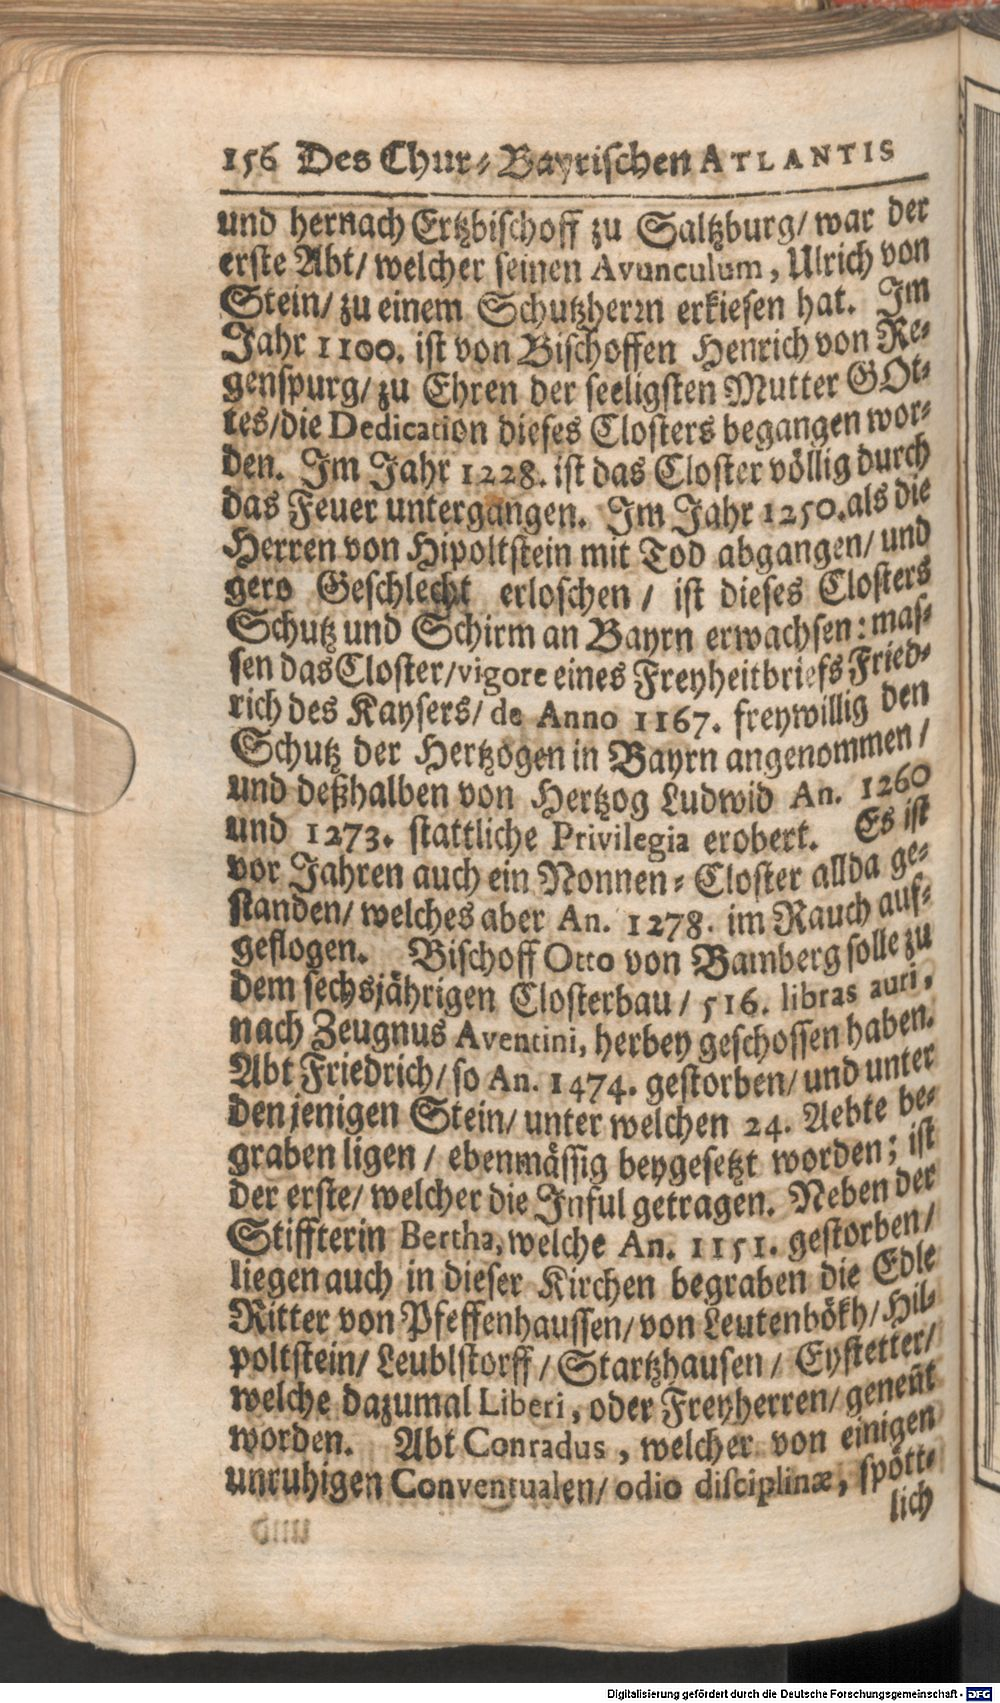 156 Des Chur-Bayrischen ATLANTIS
und hernach Ertzbischoff zu Saltzburg/ war der
erste Abt/ welcher seinen Avunculum, Ulrich von
Stein/ zu einem Schutzherrn erkiesen hat. Im
Jahr 1100. ist von Bischoffen Henrich von Re-
genspurg/ zu Ehren der seeligsten Mutter GOt-
tes/die Dedication dieses Closters begangen wor-
den. Im Jahr 1228. ist das Closter völlig durch
das Feuer untergangen. Im Jahr 1250. als die
Herren von Hipoltstein mit Tod abgangen/ und
gero Geschlecht erloschen / ist dieses Closters
Schutz und Schirm an Bayrn erwachsen: mas-
sen das Closter/vigore eines Freyheitbriefs Fried-
rich des Kaysers/ de Anno 1167. freywillig den
Schutz der Hertzogen in Bayrn angenommen /
und deßhalben von Hertzog Ludwid An. 1260
und 1273. stattliche Privilegia erobert. Es ist
vor Jahren auch ein Nonnen-Closter allda ge-
standen/ welches aber An. 1278. im Rauch auf-
geflogen. Bischoff Otto von Bamberg solle zu
dem sechsjährigen Closterbau / 516. libras auri,
nach Zeugnus Aventini, herbey geschossen haben.
Abt Friedrich/ so An. 1474. gestorben/ und unter
den jenigen Stein/ unter welchen 24. Aebte be-
graben ligen / ebenmässig beygesetzt worden; ist
der erste/ welcher die Inful getragen. Neben der
Stiffterin Bertha, welche An. 1151. gestorben/
liegen auch in dieser Kirchen begraben die Edle
Ritter von Pfeffenhaussen/ von Leutenbökh/ Hil-
poltstein/ Leublstorff / Startzhausen / Eystetter/
welche dazumal Liberi, oder Freyherren/ geneñt
worden. Abt Conradus, welcher von einigen
unruhigen Conventualen/ odio disciplinæ, spött-
lich
Digitalisierung gefördert durch die Deutsche Forschungsgemeinschaft - DFG